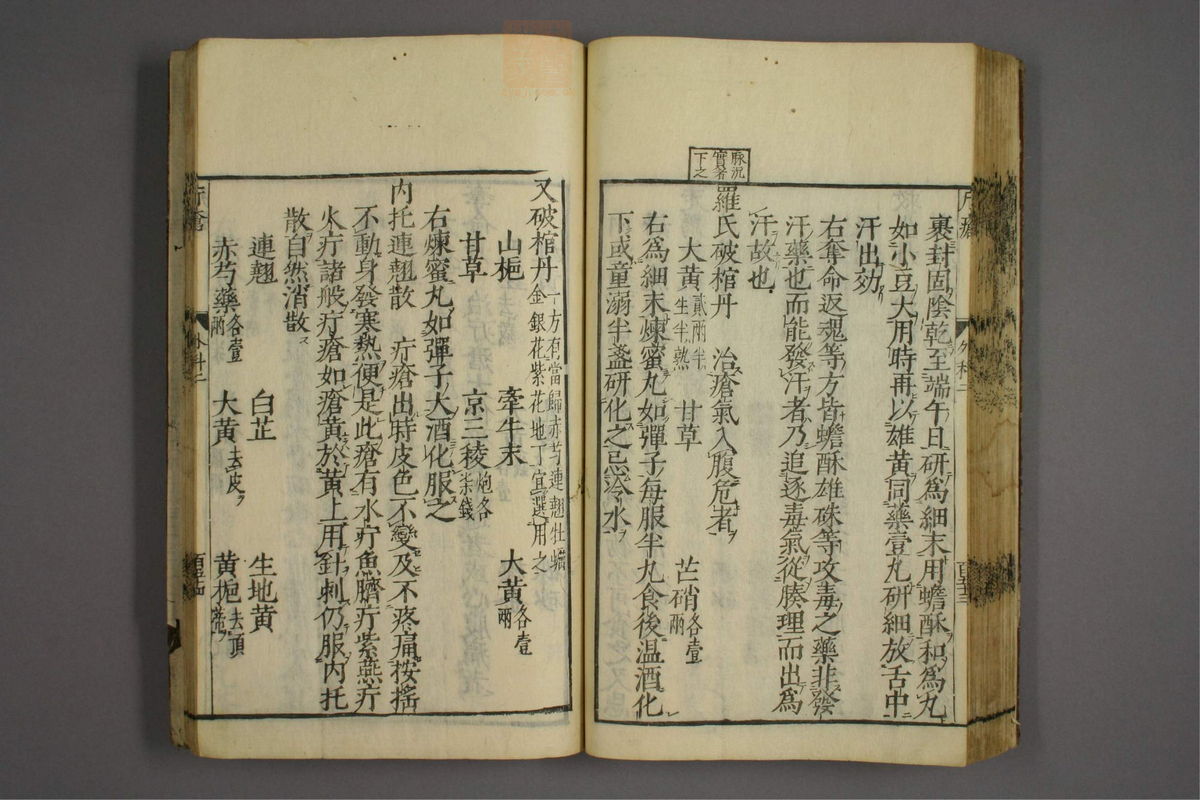 裹封固陰乾至端午日研為細末用蟾酥和為丸
如小豆大用時再以雄黃同藥壹丸研細放舌中
汗出効
右奪命返魂等方皆蟾酥雄硃等攻毒之藥非發
汗藥也而能發汗者乃追逐毒氣從腠理而出為
汗故也
脉沉
實者
下之
羅氏破棺丹 治瘡氣入腹危者
大黃貳兩半生半熟 甘草 芒硝各壹兩
右為細末煉蜜丸如彈子每服半丸食後温酒化
下或童溺半盞研化之忌冷水
又破棺丹一方有當歸赤芍連翹牡蠣金銀花紫花地丁宜選用之
山梔 牽牛末 大黃各壹兩
甘草 京三稜炮各柒錢
右煉蜜丸如彈子大酒化服之
內托連翹散 疔瘡出時皮色不變及不疼痛按搖
不動身發寒熱便是此瘡有水疔魚臍疔紫燕疔
火疔諸般疔瘡如瘡黃於黃上用針刺仍服內托
散自然消散
連翹 白芷 生地黃
赤芍藥各壹兩 大黃去皮 黃梔去頂蒂
疔瘡
外科二